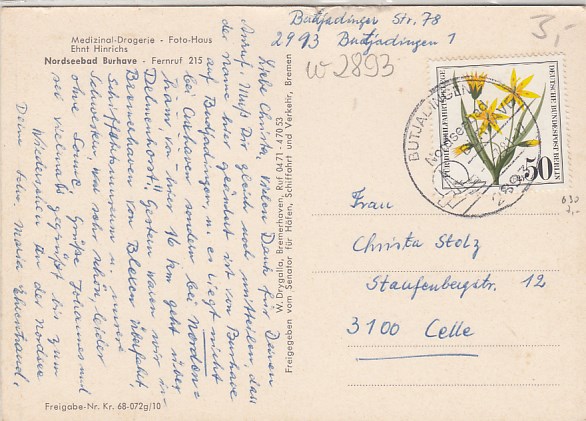 Butjadinger Str. 78
2893 Butjadingen 1
W 2893
3,-
Medizinal-Drogerie - Foto-Haus
Ehnt Hinrichs
Nordseebad Burhave - Fernruf 215
Liebe Christa, Vielen Dank für Deinen
Anruf. Muß Dir gleich noch mitteilen, daß
der Name hier geändert ist von Burhave
auf Butjadingen, u. es liegt nicht
bei Cuxhaven sondern bei Nordenham,
von hier 16 km geht über
Delmenhorst. Gestern waren wir in
Bremerhaven von Blexen Überfahrt
Schiffahrtsmuseum u. unsere
Schwestern, war sehr schön, leider
ohne Sonne. Grüße Johannes und
sei vielmals gegrüßt bis zum
Wiedersehen an der Nordsee
Deine
W. Drygalla, Bremerhaven, Ruf 0471-47053
Freigegeben vom Senator für Häfen, Schiffahrt und Verkehr, Bremen
Freigabe-Nr. Kr. 68-072g/10
WOHLFAHRTSPFLEGE
DEUTSCHE BUNDESPOST BERLIN
50
BUTJADINGEN
Nordseebad
2893
Frau
Christa Stolz
Staufenbergstr. 12
3100 Celle